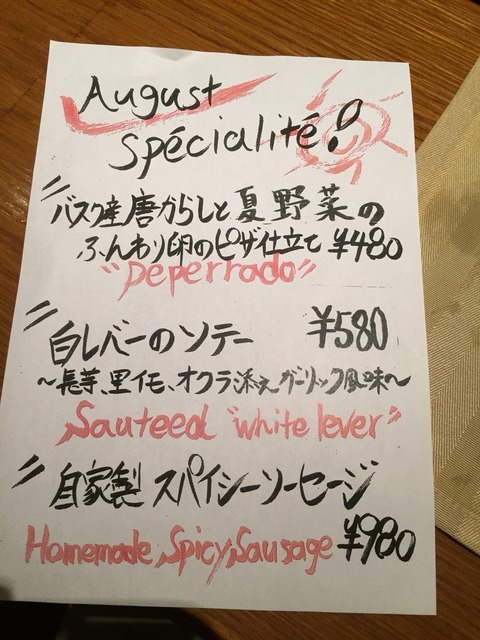 August
spécialité!
バスク産唐がらしと夏野菜の
ふんわり卵のピザ仕立て ¥480
"Deperrado"
白レバーのソテー ¥580
~長芋、里イモ、オクラ添え ガーリック風味~
Sauteed "white lever"
自家製 スパイシーソーセージ
Homemade Spicy Sausage ¥980